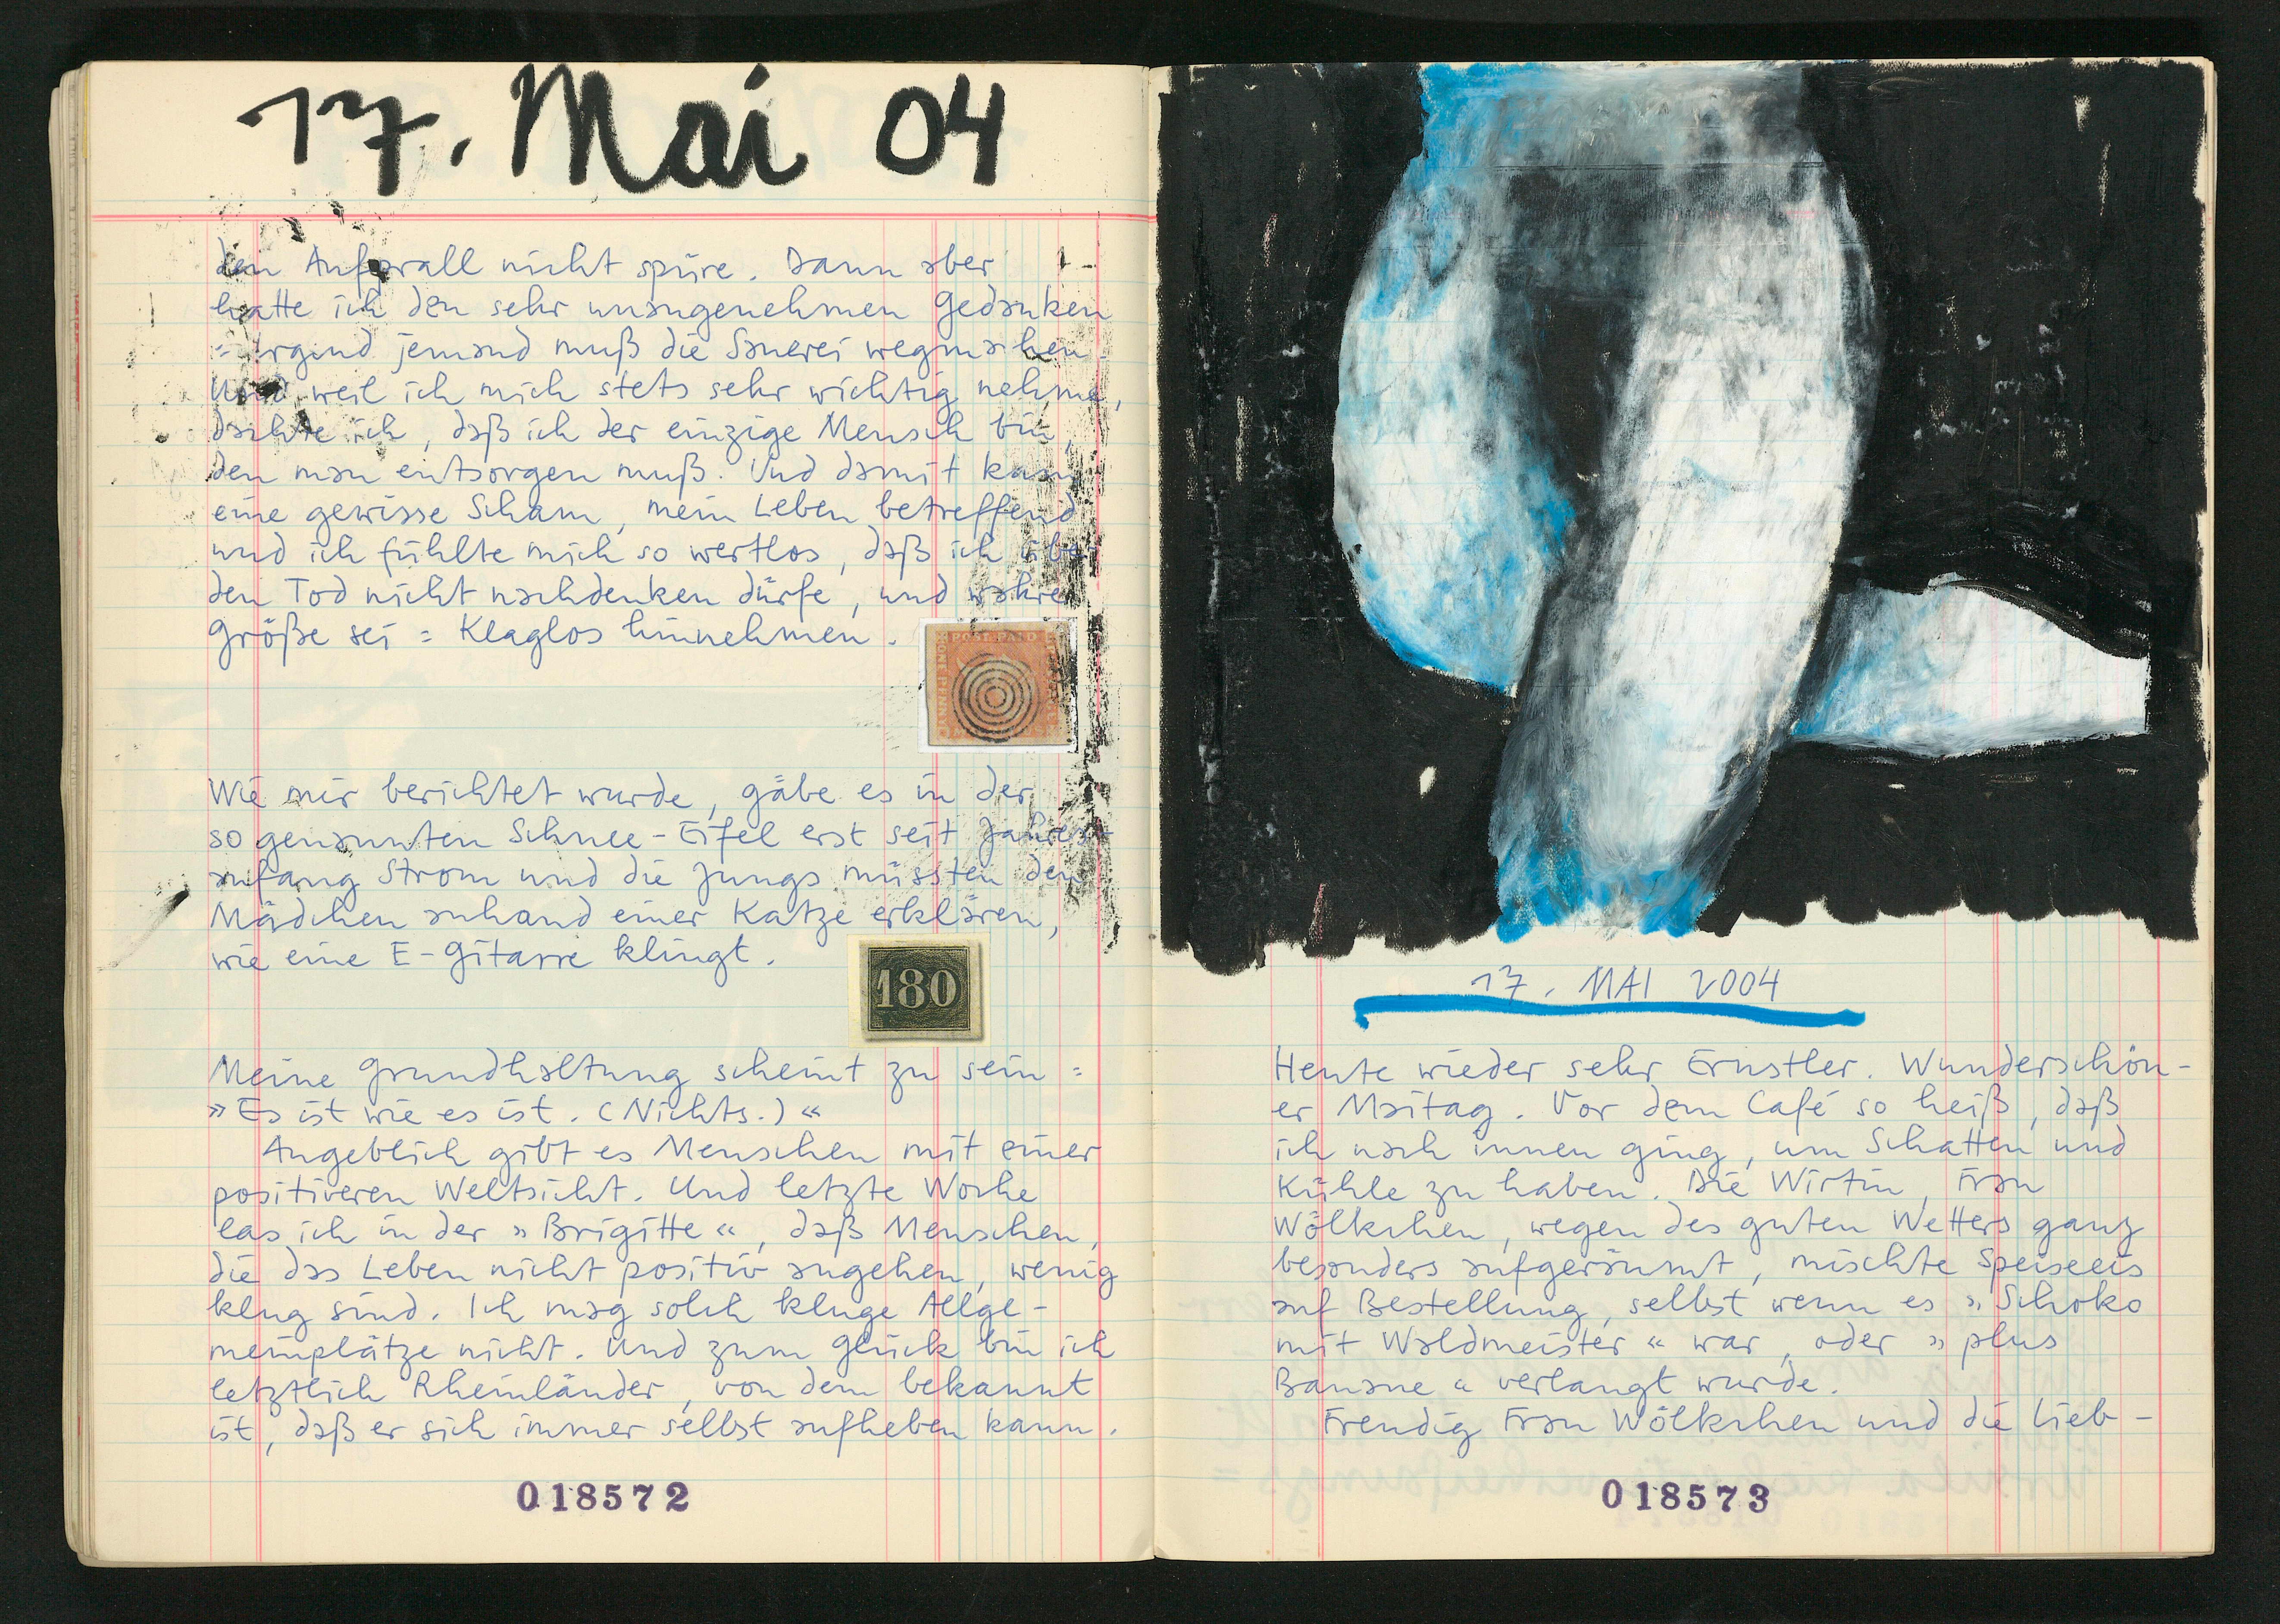 17. Mai 04
den Aufprall nicht spüre. Dann aber
hatte ich den sehr unangenehmen Gedanken
= irgend jemand muß die Sauerei wegmachen.
Und weil ich mich stets sehr wichtig nehme,
dachte ich, daß ich der einzige Mensch bin,
den man entsorgen muß. Und damit kam
eine gewisse Scham, mein Leben betreffend
und ich fühlte mich so wertlos, daß ich über
den Tod nicht nachdenken dürfe, und wahre
Größe sei = Klaglos hinnehmen.
POST PAID
Wie mir berichtet wurde, gäbe es in der
so genannten Schnee-Eifel erst seit Jahres-
anfang Strom und die Jungs müssten den
Mädchen anhand einer Katze erklären,
wie eine E-Gitarre klingt.
180
Meine Grundhaltung scheint zu sein =
»Es ist wie es ist. (Nichts.)«
Angeblich gibt es Menschen mit einer
positiveren Weltsicht. Und letzte Woche
las ich in der »Brigitte«, daß Menschen,
die das Leben nicht positiv angehen, wenig
klug sind. Ich mag solch kluge Allge-
meinplätze nicht. Und zum Glück bin ich
letztlich Rheinländer, von dem bekannt
ist, daß er sich immer selbst aufheben kann.
018572
17. MAI 2004
Heute wieder sehr Ernstler. Wunderschön-
er Maitag. Vor dem Café so heiß, daß
ich nach innen ging, um Schatten und
Kühle zu haben. Die Wirtin, Frau
Wölkchen, wegen des guten Wetters ganz
besonders aufgeräumt, mischte Speiseeis
auf Bestellung, selbst wenn es »Schoko
mit Waldmeister« war, oder »plus
Banane« verlangt wurde.
Freudig Frau Wölkchen und die Lieb-
018573